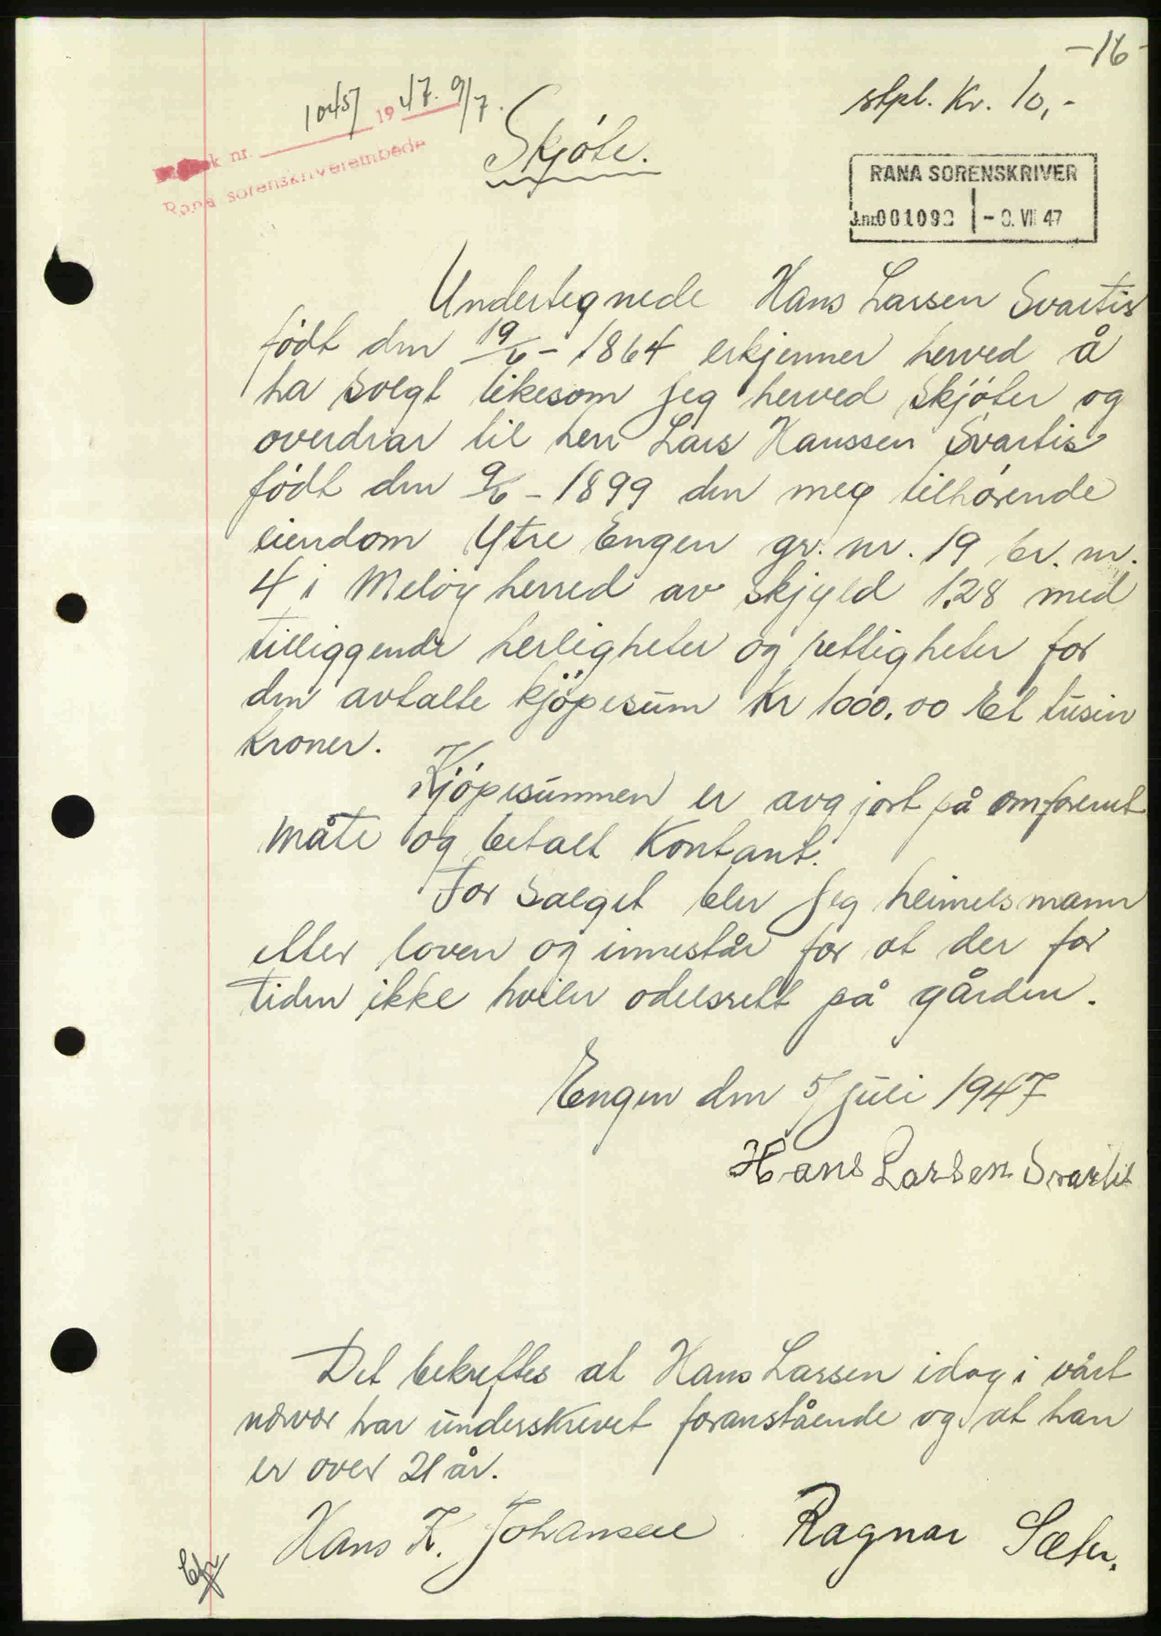 -16-
stpl. Kr. 10,-
1045/ 1947. 9/7.
k nr.
Rana sorenskriverembede
Skjöte.
RANA SORENSKRIVER
J.nr. 001092 - 9. VII 47
Undertegnede Hans Larsen Svartis
födt den 19/6 - 1864 erkjenner herved å
ha solgt likesom jeg herved skjöter og
overdrar til herr Lars Hanssen Svartis
födt den 9/6 - 1899 den meg tilhörende
eiendom Ytre Engen gr. nr. 19 br. nr.
4 i Melöy herred av skjyld 1.28 med
tilliggende herligheter og rettigheter for
den avtalte kjöpesum Kr 1000.00 Et tusin
kroner.
Kjöpesummen er avgjort på omforenet
måte og betalt kontant.
For salget blir jeg heimelsmann
etter loven og innestår for at der for
tiden ikke hviler odelsrett på gården.
Engen den 5/juli 1947
Hans Larsen Svartis
Det bekreftes at Hans Larsen idag i vårt
nærvær har underskrevet foranstående og at han
er over 21 år.
Hans K. Johansen Ragnar Sæter.